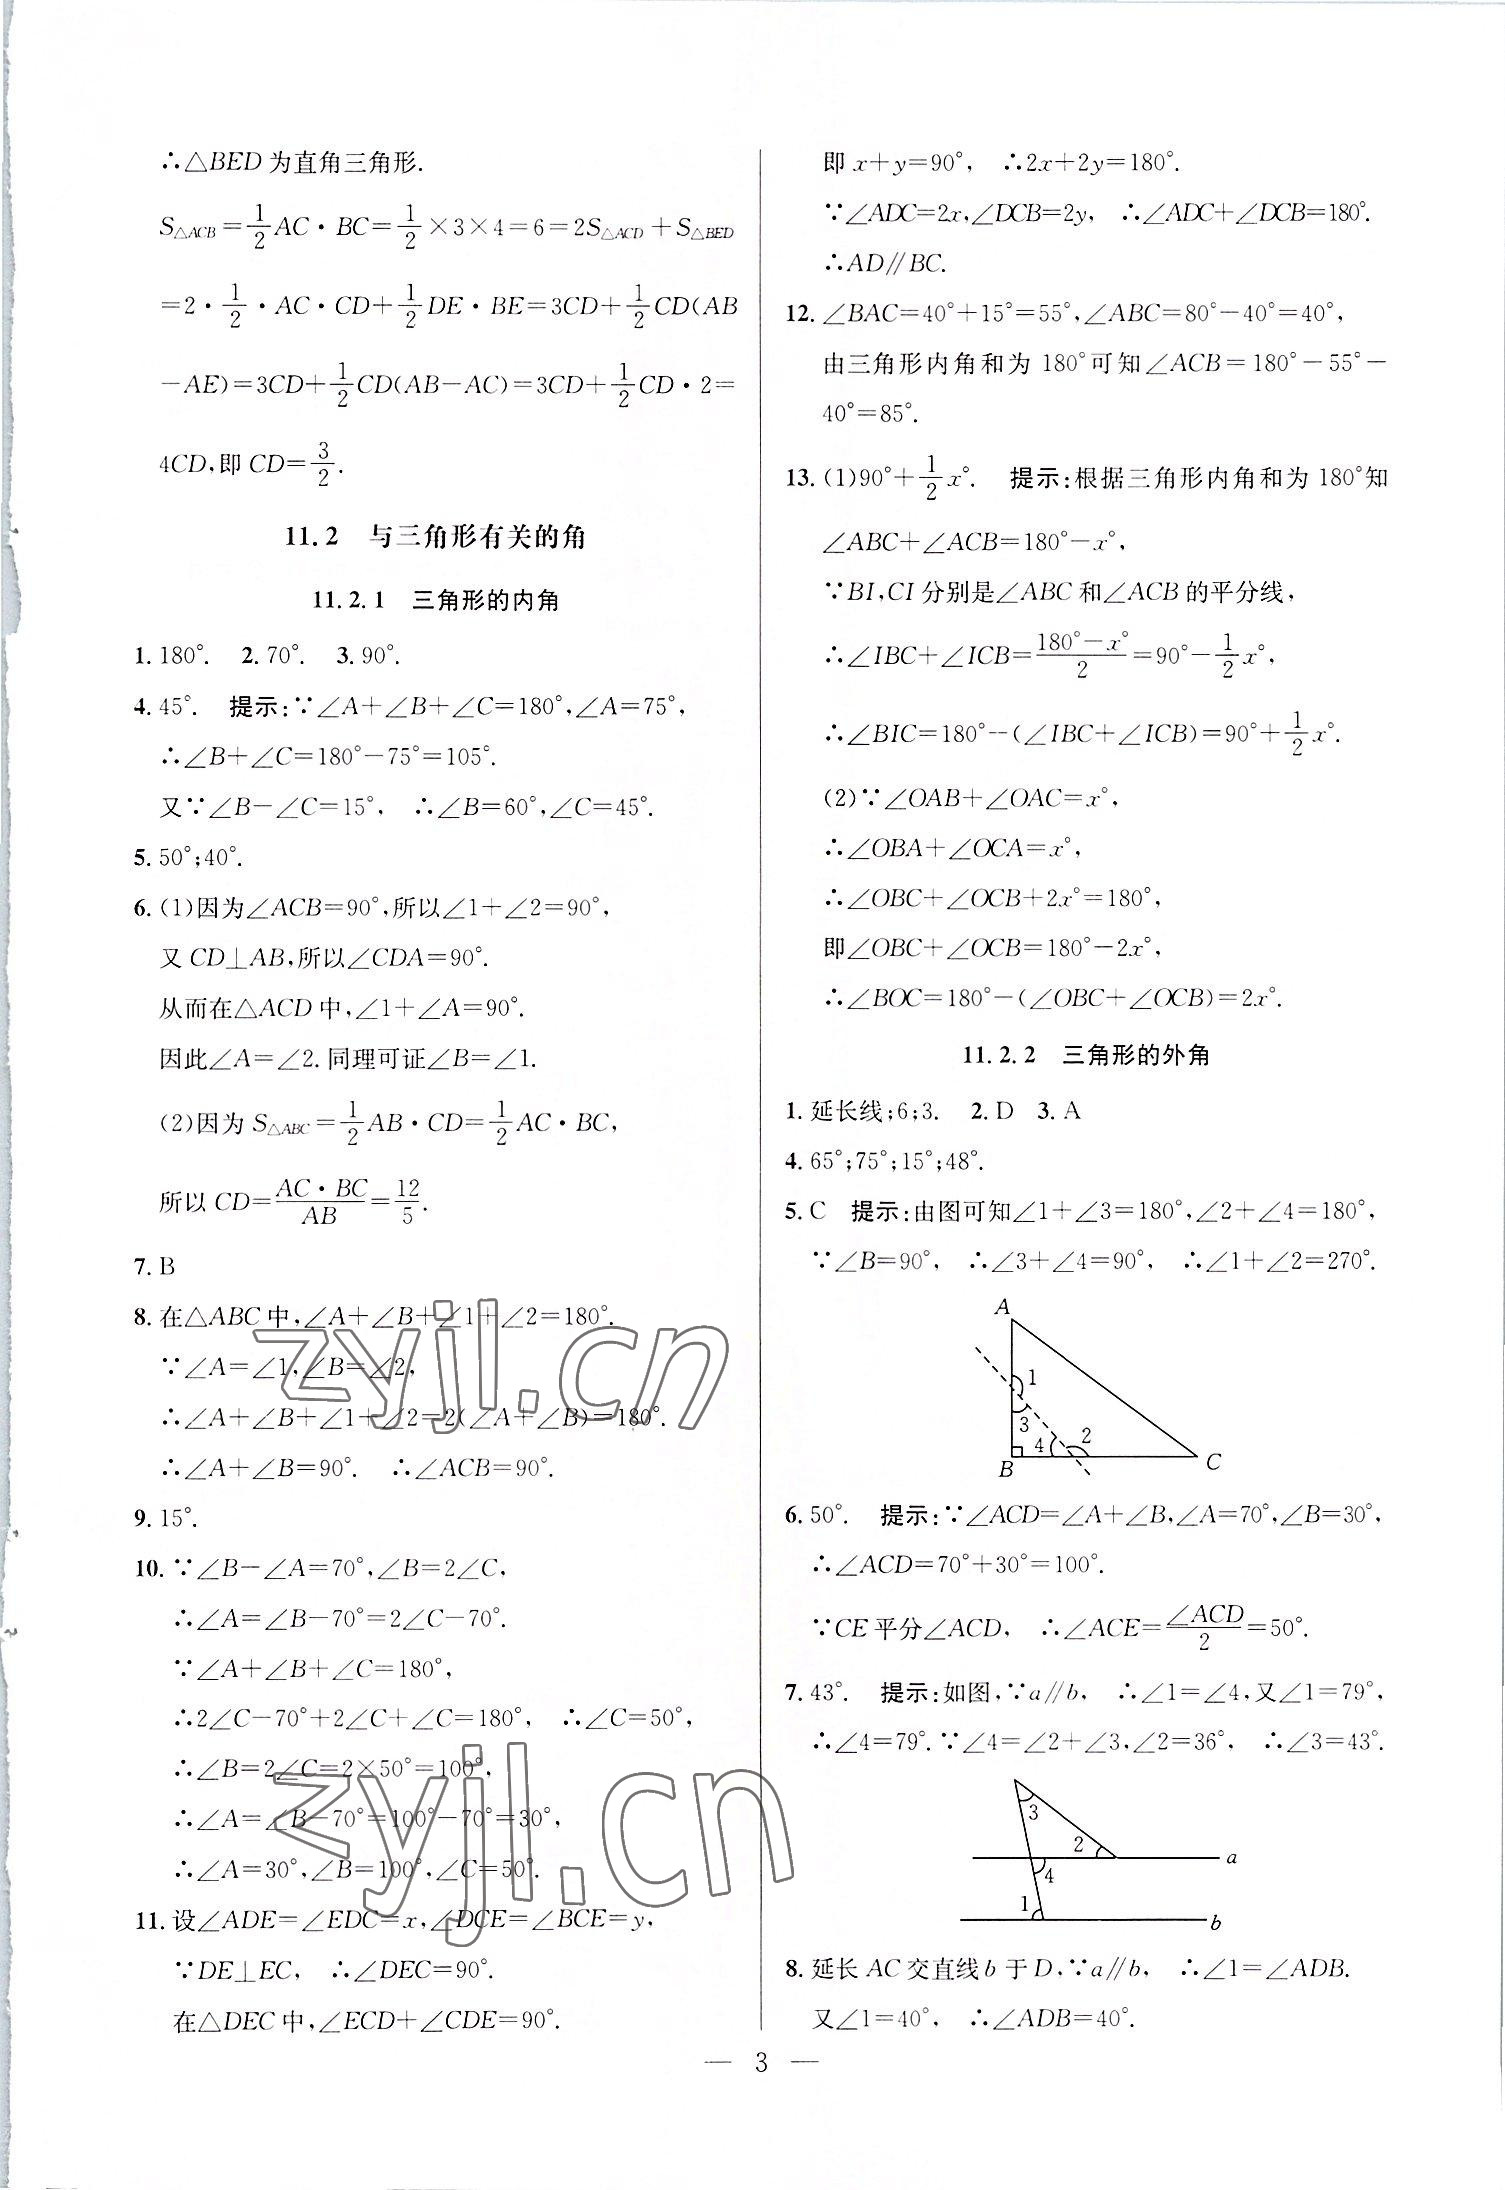 ∴△BED为直角三角形.
S△ACB=1/2AC·BC=1/2×3×4=6=2S△ACD+S△BED
=2·1/2·AC·CD+1/2DE·BE=3CD+1/2CD(AB
-AE)=3CD+1/2CD(AB-AC)=3CD+1/2CD·2=
4CD,即CD=3/2.
11.2 与三角形有关的角
11.2.1 三角形的内角
1.180°. 2.70°. 3.90°.
4.45°. 提示:∵∠A+∠B+∠C=180°,∠A=75°,
∴∠B+∠C=180°-75°=105°.
又∵∠B-∠C=15°, ∴∠B=60°,∠C=45°.
5.50°;40°.
6.(1)因为∠ACB=90°,所以∠1+∠2=90°,
又CD⊥AB,所以∠CDA=90°.
从而在△ACD中,∠1+∠A=90°.
因此∠A=∠2.同理可证∠B=∠1.
(2)因为S△ABC=1/2AB·CD=1/2AC·BC,
所以CD=AC·BC/AB=12/5.
7.B
8.在△ABC中,∠A+∠B+∠1+∠2=180°.
∵∠A=∠1,∠B=∠2,
∴∠A+∠B+∠1+∠2=2(∠A+∠B)=180°.
∴∠A+∠B=90°. ∴∠ACB=90°.
9.15°.
10.∵∠B-∠A=70°,∠B=2∠C,
∴∠A=∠B-70°=2∠C-70°.
∵∠A+∠B+∠C=180°,
∴2∠C-70°+2∠C+∠C=180°, ∴∠C=50°,
∴∠B=2∠C=2×50°=100°,
∴∠A=∠B-70°=100°-70°=30°,
∴∠A=30°,∠B=100°,∠C=50°.
11.设∠ADE=∠EDC=x,∠DCE=∠BCE=y,
∵DE⊥EC, ∴∠DEC=90°.
在△DEC中,∠ECD+∠CDE=90°.
即x+y=90°, ∴2x+2y=180°.
∵∠ADC=2x,∠DCB=2y, ∴∠ADC+∠DCB=180°.
∴AD∥BC.
12.∠BAC=40°+15°=55°,∠ABC=80°-40°=40°,
由三角形内角和为180°可知∠ACB=180°-55°-
40°=85°.
13.(1)90°+1/2x°. 提示:根据三角形内角和为180°知
∠ABC+∠ACB=180°-x°,
∵BI,CI分别是∠ABC和∠ACB的平分线,
∴∠IBC+∠ICB=180°-x°/2=90°-1/2x°,
∴∠BIC=180°-(∠IBC+∠ICB)=90°+1/2x°.
(2)∵∠OAB+∠OAC=x°,
∴∠OBA+∠OCA=x°,
∴∠OBC+∠OCB+2x°=180°,
即∠OBC+∠OCB=180°-2x°,
∴∠BOC=180°-(∠OBC+∠OCB)=2x°.
11.2.2 三角形的外角
1.延长线;6;3. 2.D 3.A
4.65°;75°;15°;48°.
5.C 提示:由图可知∠1+∠3=180°,∠2+∠4=180°,
∵∠B=90°, ∴∠3+∠4=90°, ∴∠1+∠2=270°.
A
1
3
4 2
B C
6.50°. 提示:∵∠ACD=∠A+∠B,∠A=70°,∠B=30°,
∴∠ACD=70°+30°=100°.
∵CE平分∠ACD, ∴∠ACE=∠ACD/2=50°.
7.43°. 提示:如图,∵a∥b, ∴∠1=∠4,又∠1=79°,
∴∠4=79°.∵∠4=∠2+∠3,∠2=36°, ∴∠3=43°.
3
2
a
4
1
b
8.延长AC交直线b于D,∵a∥b, ∴∠1=∠ADB.
又∠1=40°, ∴∠ADB=40°.
— 3 —
zyjl.cn
zyjl.cn